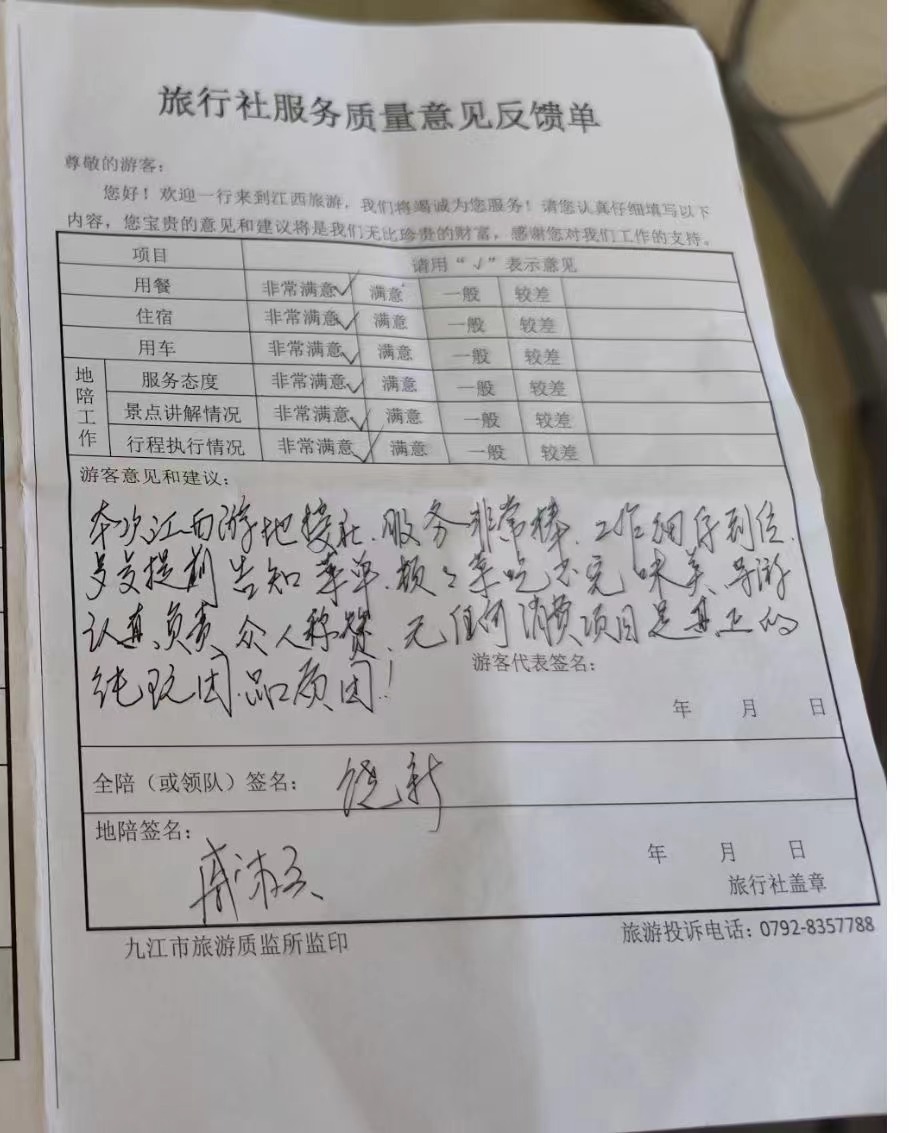 旅行社服务质量意见反馈单
尊敬的游客：
您好！欢迎一行来到江西旅游，我们将竭诚为您服务！请您认真仔细填写以下
内容，您宝贵的意见和建议将是我们无比珍贵的财富，感谢您对我们工作的支持。
项目 请用“√”表示意见
用餐 非常满意√ 满意 一般 较差
住宿 非常满意√ 满意 一般 较差
用车 非常满意√ 满意 一般 较差
地陪工作 服务态度 非常满意√ 满意 一般 较差
景点讲解情况 非常满意√ 满意 一般 较差
行程执行情况 非常满意√ 满意 一般 较差
游客意见和建议：
本次江西游地接社.服务非常棒.工作细仔到位.
提前告知菜单.顿々菜吃不完味美.导游
认真负责.众人称赞.无任何消费项目是真正的
纯玩团.品质团.!
游客代表签名：
年 月 日
全陪（或领队）签名： 饶新
地陪签名：
年 月 日
旅行社盖章
九江市旅游质监所监印 旅游投诉电话：0792-8357788